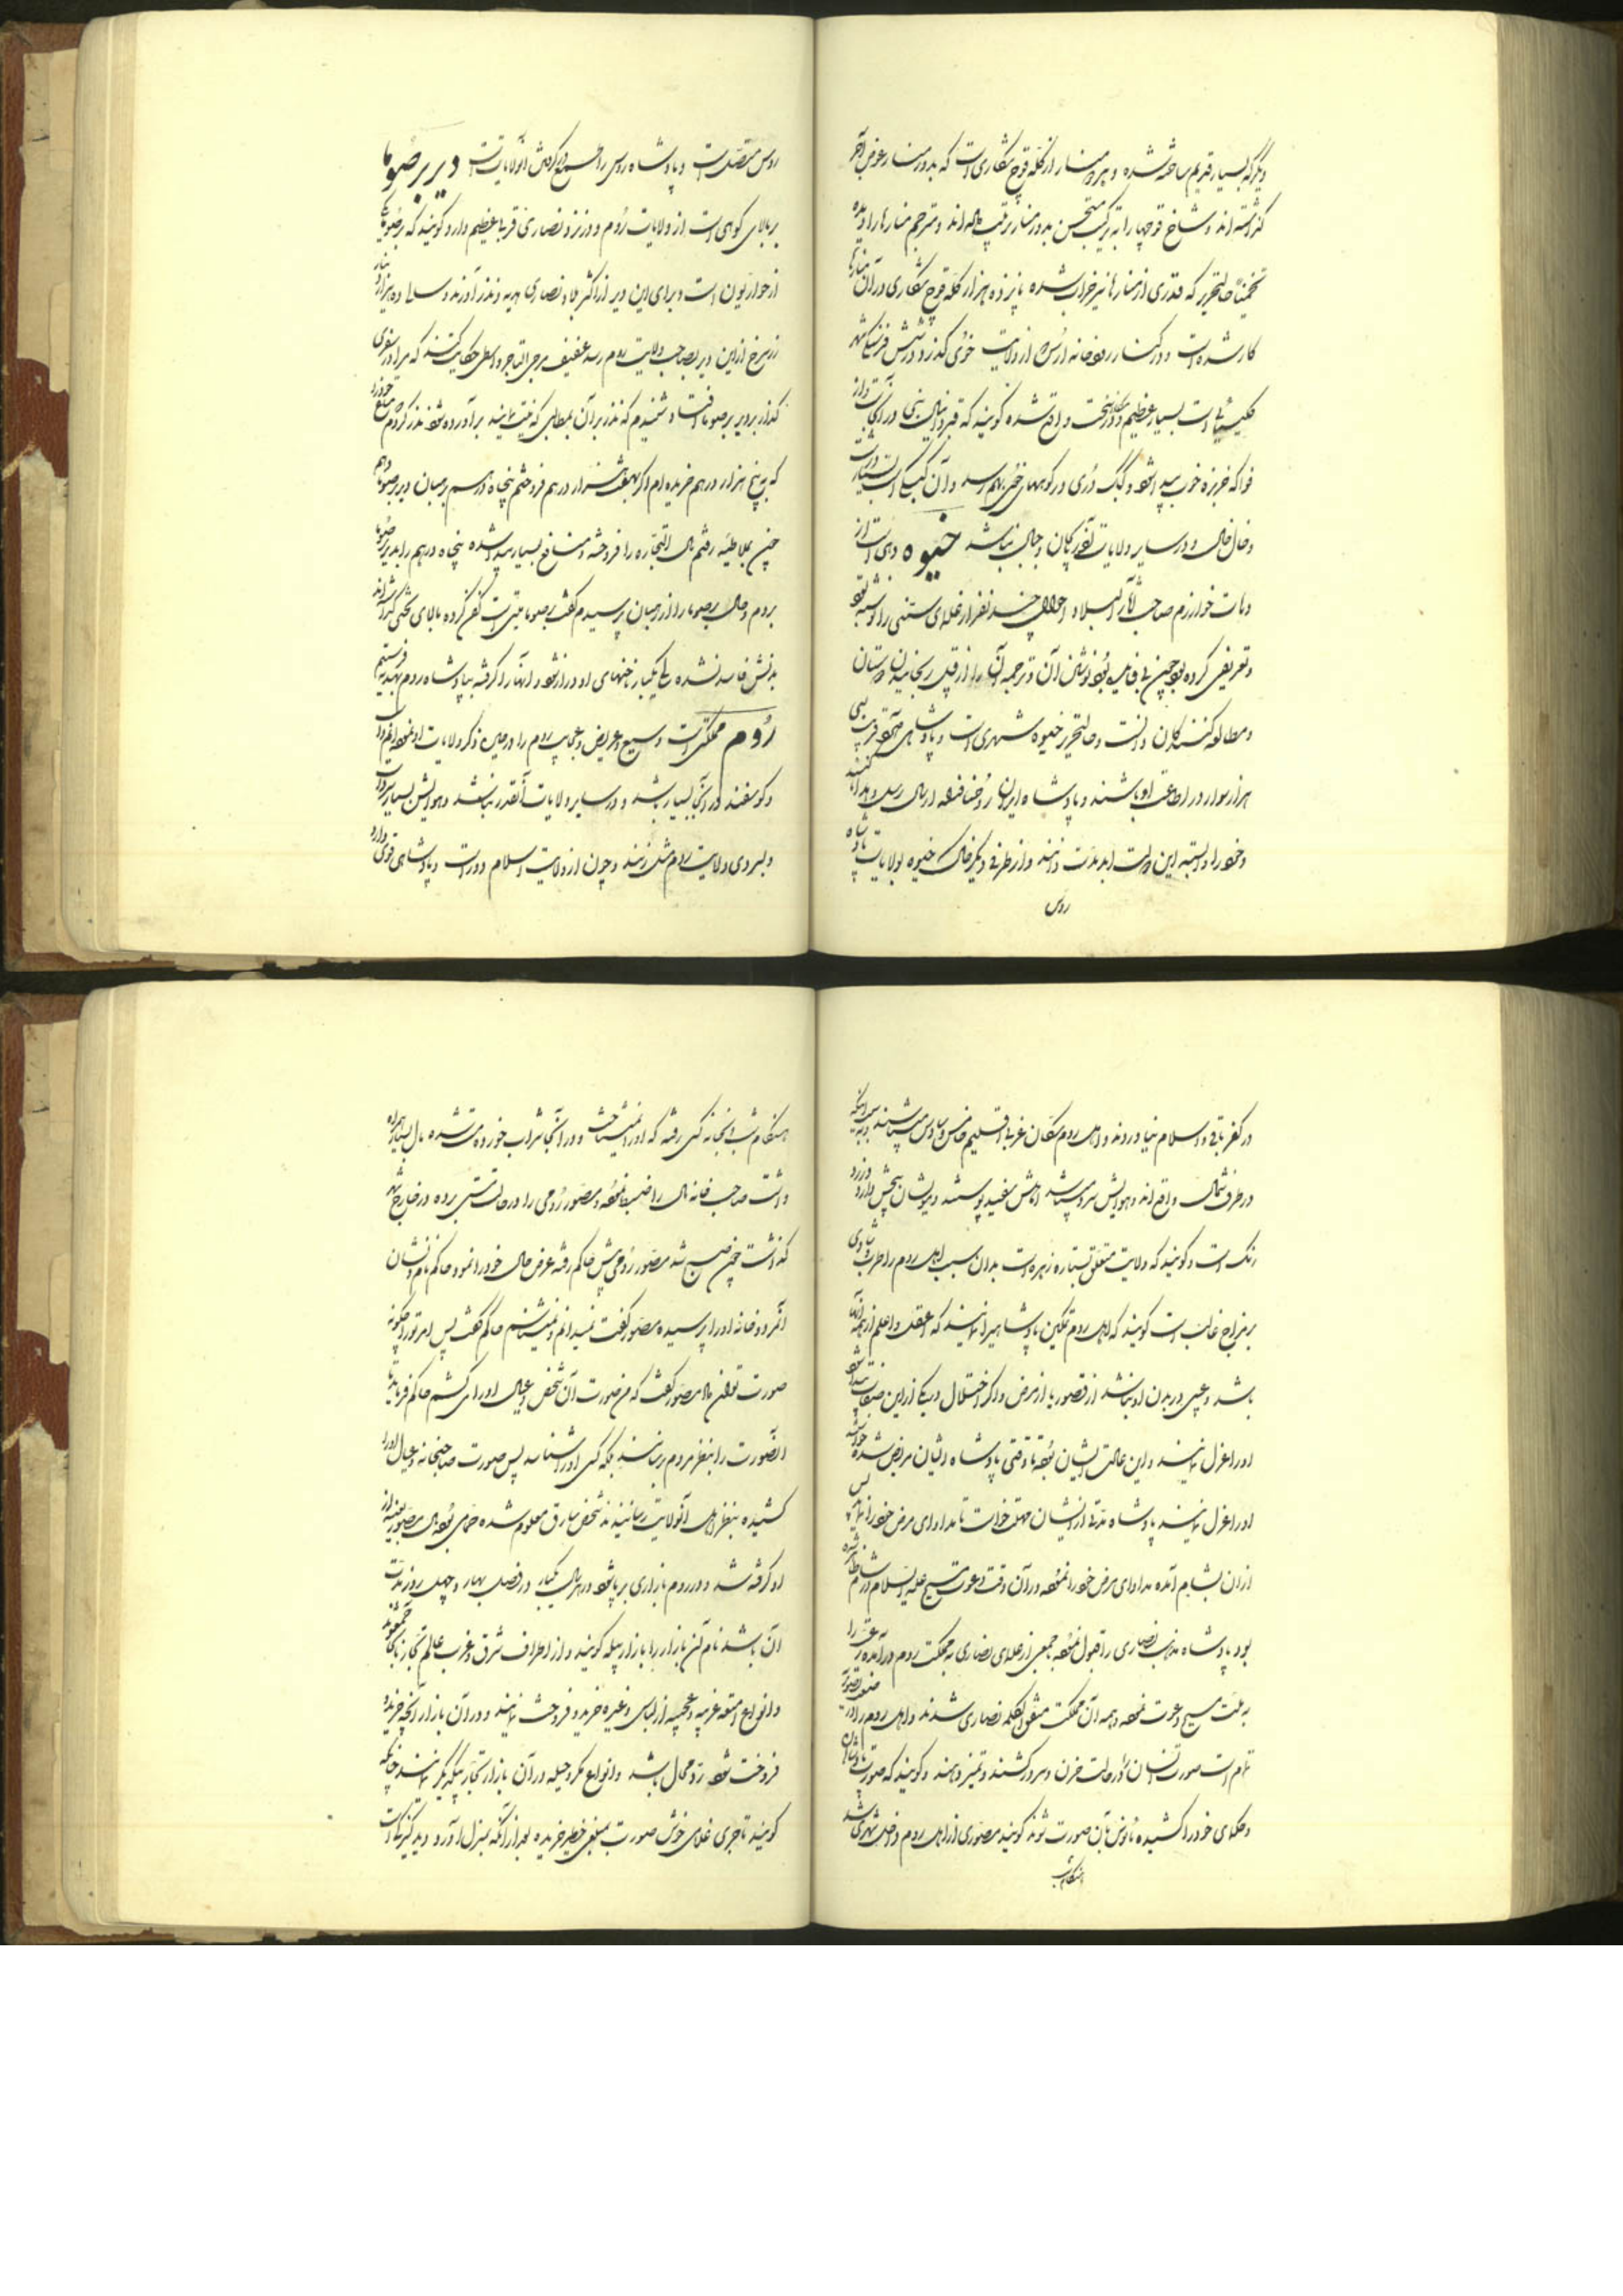 دیگر که بسیار قدیم ساخته شده و بر دور منار از کله قوچ شکاری است که بدور منار عوض آجر
گذاشته اند و شاخ قوچها را به ترکیب مستحسن بدور منار ترتیب داده اند و مترجم منارها را دیده
تخمیناً حالتحریر که قدری از منارها نیز خراب شده پانزده هزار کله قوچ شکاری در آن منارها
کار شده است و در کنار رودخانه ارس از ولایت خوی گذرد در شش فرسنگی شهر
کلیسیائی است بسیار عظیم و واقع شده گویند که قبر نبی در آنجاست و از
فواکه خربزه خوب پیدا شود و کبک دری در کوههای خوی بهم رسد و آن کبک است بسیار درشت
و خال خال و در سایر ولایات آذربایجان و جبال نباشد خیوه دهی است از
دهات خوارزم صاحب آثار البلاد احوال چند نفر از علمای سنی را نوشته بود
و تعریف کرده بود چون بی فایده بود نوشتن آن و ترجمه آن را از قبیل ریختانیدن دوستان
و مطالعه کنندگان دانست و حالتحریر خیوه شهری است و پادشاهی قریب سی
هزار سوار در اطاعت او باشند و پادشاه ایران را ارسال رسل و هدایا کنند
و خود را وابسته این دولت ابد مدت دانند و از طرفی دیگر خاک خیوه بولایات پادشاه
روس
روس متصل است و پادشاه روس را طمع در گرفتن آنولایات است دیر برصوما
بر بالای کوهی است از ولایات روم و در نزد نصاری قربا عظیم دارد گویند که برصوما یکی
از حواریون است و برای این دیر از اکثر بلاد نصاری هدیه و نذر آورند و سالی ده هزار دینار
زر سرخ از این دیر بصاحب ولایت روم رسد عفیف مرجی التاجر واسطی حکایت کنند که مرا در سفری
گذار بر دیر برصوما افتاد و شنیدم که نذر بر آن بمطالبی که نیت نمایند برآورده شود نذر کردم متاع خود را
که به پنج هزار درهم خریده ام اگر بهفت هزار درهم فروختم پنجاه درهم بر رهبان دیر برصوما دهم
چون بملاطیه رفتم مال التجاره را فروخته و منافع بسیار پیدا شده پنجاه درهم را بدیر برصوما
بردم و حال برصوما را از رهبان پرسیدم گفت برصوما میتی است کفن کرده بالای تختی گذاشته اند
بدنش فاسد نشده سالی یکبار ناخنهای او دراز شود و آنها را گرفته بپادشاه روم بهدیه فرستیم
روم مملکتی است وسیع و عریض و عجایب روم را در ضمن ذکر ولایات او نموده ایم و
گوسفند در آنجا بسیار باشد و در سایر ولایات آنقدر نباشد و هوایش بسیار سرد است
و بسردی ولایت روم مثل زنند و چون از ولایت اسلام دور است و پادشاهی قوی دارد
در کفر باقی و اسلام نیاوردند و اهل روم سکان غربی اقلیم خامس و سادس میباشند و بسبب اینکه
در طرف شمال واقع اند و هوایش سرد میباشد اهلش سفید پوستند و مویشان پیچش دارد و زرد
رنگ است و گویند که ولایت متعلق بستاره زهره است بدان سبب اهل روم را طرب و شادی
بر مزاج غالب است گویند که اهل روم تمکین پادشاهی را نمایند که اعقل و اعلم از همه آنها
باشد و عیبی در بدن او نباشد از قصور یا از مرض و اگر اختلال در یکی از این صفات پیدا شود
او را عزل نمایند و این عادت ایشان بوده تا وقتی پادشاه ایشان مریض شده خواستند
او را عزل نمایند پادشاه مدتی از ایشان مهلت خواست تا مداوای مرض خود را نماید پس
از آن بشام آمده مداوای مرض خود را نموده در آن وقت دعوت مسیح علیه السلام در شام ظاهر شده
بود پادشاه مذهب نصاری را قبول نموده جمعی از علمای نصاری به مملکت روم در آمده رعیت را
به ملت مسیح دعوت نموده و همه آن مملکت متفق الکلمه نصاری شدند و اهل روم را در صنعت تصویر
تمام است صورت انسان را در حالت حزن و سرور کشند و تمیز دهند و گویند که صورت پادشاهان
و حکمای خود را کشیده مأنوس بآن صورت شوند گویند مصوری از اهل روم داخل شهری شد
هنگام شب
هنگام شب بخانه کسی رفته که او را نمیشناخت و در آنجا شراب خورده مست شده مال بسیار همراه
داشت صاحب خانه مال را ضبط نموده و مصور رومی را در حالت مستی برده در خارج شهر
گذاشت چون صبح شد مصور رومی پیش حاکم رفته عرض حال خود را نمود حاکم نام و نشان
آنمرد و خانه او را پرسیده مصور گفت نمیدانم و نمیشناسم حاکم گفت پس امر تو را چگونه
صورت توان داد مصور گفت که من صورت آن شخص و عیال او را می کشم حاکم فرماید تا
آنصورت را بنظر مردم رسانند بلکه کسی او را شناسد پس صورت صاحبخانه و عیال او را
کشیده بنظر اهل آنولایت رسانیدند شخص سارق معلوم شده حمامی بود مال مصور بعینه از
او گرفته شد و در روم بازاری بر پا شود در هر سال یکبار در فصل بهار و چهل روز مدت
آن باشد نام آن بازار را بازار پیله گویند و از اطراف شرق و غرب عالم تجار بآنجا جمع شوند
و انواع امتعه غریبه و عجیبه از لباس و غیره خرید و فروخت نمایند و در آن بازار آنچه خریده
فروخت شود رد محال باشد و انواع مکر و حیله در آن بازار تجار بیکدیگر نمایند چنانکه
گویند تاجری غلامی خوش صورت بمبلغی خطیر خریده بعد از آنکه بمنزل آورد دید کنیزک است